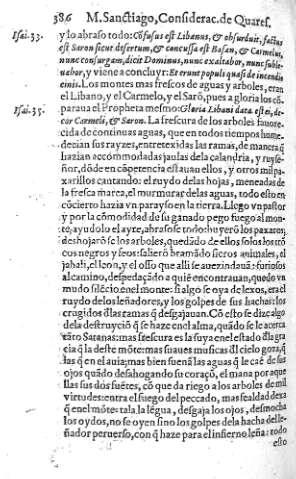 386 M. Sanctiago, Considerac. de Quares.
Isai.33. y lo abraso todo: Cõfusus est Libanus, & obsurduit, factus
est Saron sicut desertum, & concussa est Basan, & Carmelus,
nunc consurgam, dicit Dominus, nunc exaltabor, nunc suble-
uabor, y viene a concluyr: Et erunt populi quasi de incendio
cinis. Los montes mas frescos de aguas y arboles, eran
el Libano, y el Carmelo, y el Sarõ, pues a gloria los cõ-
Isai.35. para ua el Propheta mesmo: Gloria Libani data est ei, de-
cor Carmeli, & Saron. La frescura de los arboles fauore-
cida de continuas aguas, que en todos tiempos hume-
decian sus rayzes, entretexidas las ramas, de manera q̃
hazian accommodadas jaulas de la calandria, y ruyse-
ñor, dõde en cõpetencia estauan ellos, y otros mil pa-
xarillos cantando: el ruydo de las hojas, meneadas de
la fresca marea, el murmurar de las aguas, todo esto en
cõcierto hazia vn parayso en la tierra. Llego vn pastor
y por la cõmodidad de su ganado pego fuego al mon-
te, ayudolo el ayre, abrasose todo: huyerõ los paxaros,
deshojarõse los arboles, quedãdo de ellos solos los trõ
cos negros y feos: salierõ bramãdo sieros animales, el
jabali, el leon, y el osso que alli se auezindaua: furiosos
al camino, despedaçãdo a quiẽ encontrauan, quedo vn
mudo silẽcio en el monte: si algo se oya de lexos, era el
ruydo de los leñadores, y los golpes de sus hachas: los
crugidos d̃ las ramas q̃ desgajauan. Cõ esto se dize algo
de la destruyciõ q̃ se haze en el alma, quãdo se le acerca
tãto Satanas: mas frescura es la suya en el estado d̃ la gra
cia q̃ la deste mõte: mas suaues musicas d̃l cielo goza, q̃
las q̃ en el auia; mas bien suenã las aguas q̃ le caẽ de sus
ojos quãdo desahogando su coraçõ, el mana por aque
llas sus dos fuẽtes, cõ que da riego a los arboles de mil
virtudes: entra el fuego del peccado, mas fealdad dexa
q̃ en el mõte: tala, la légua, desgaja los ojos, desmocha
los oydos, no se oyen sino los golpes dela hacha del le-
ñador peruerso, con q̃ haze para el infierno leña: todo
esto